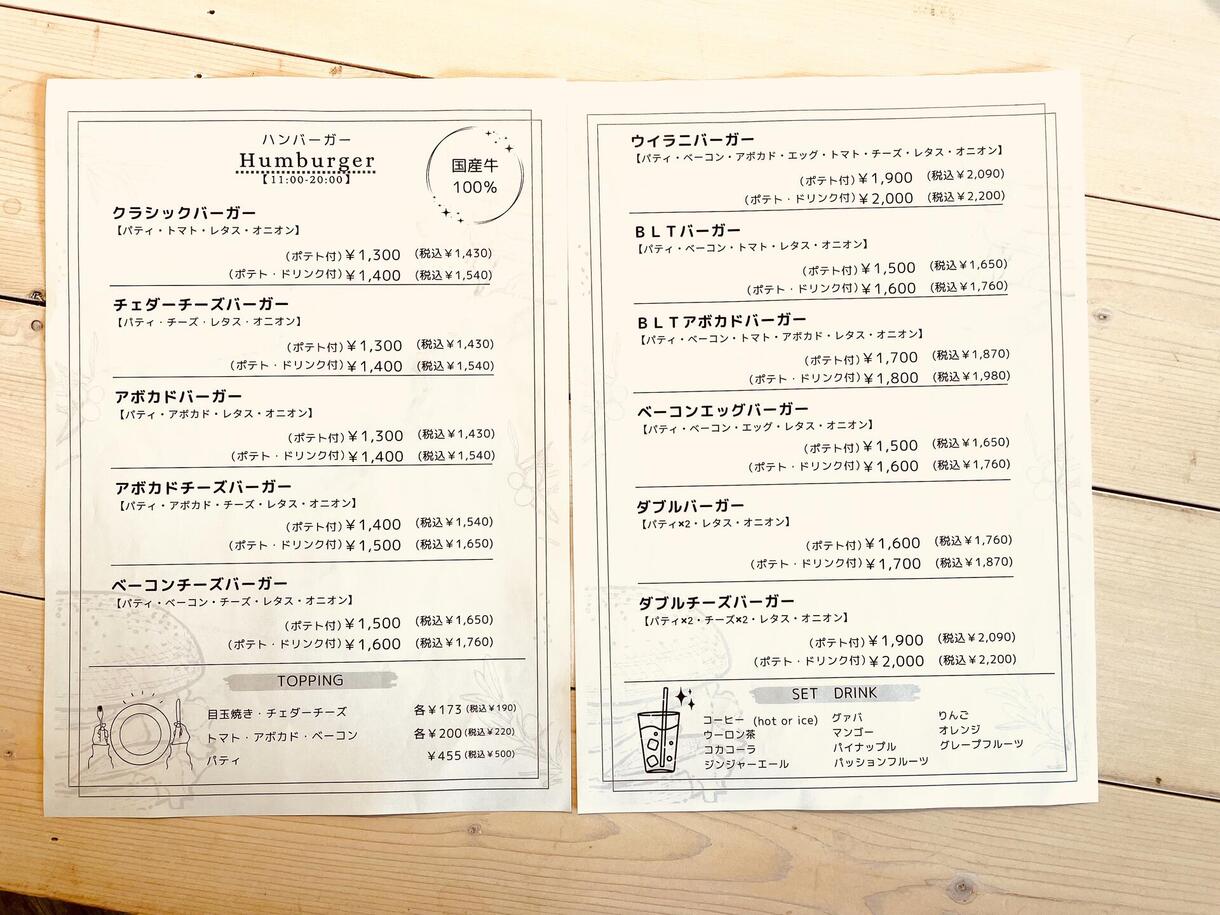 ハンバーガー
Humburger
【11:00-20:00】
国産牛
100%
クラシックバーガー
【パティ・トマト・レタス・オニオン】
(ポテト付)￥1,300 (税込￥1,430)
(ポテト・ドリンク付)￥1,400 (税込￥1,540)
チェダーチーズバーガー
【パティ・チーズ・レタス・オニオン】
(ポテト付)￥1,300 (税込￥1,430)
(ポテト・ドリンク付)￥1,400 (税込￥1,540)
アボカドバーガー
【パティ・アボカド・レタス・オニオン】
(ポテト付)￥1,300 (税込￥1,430)
(ポテト・ドリンク付)￥1,400 (税込￥1,540)
アボカドチーズバーガー
【パティ・アボカド・チーズ・レタス・オニオン】
(ポテト付)￥1,400 (税込￥1,540)
(ポテト・ドリンク付)￥1,500 (税込￥1,650)
ベーコンチーズバーガー
【パティ・ベーコン・チーズ・レタス・オニオン】
(ポテト付)￥1,500 (税込￥1,650)
(ポテト・ドリンク付)￥1,600 (税込￥1,760)
TOPPING
目玉焼き・チェダーチーズ 各￥173 (税込￥190)
トマト・アボカド・ベーコン 各￥200 (税込￥220)
パティ ￥455 (税込￥500)
ウイラニバーガー
【パティ・ベーコン・アボカド・エッグ・トマト・チーズ・レタス・オニオン】
(ポテト付)￥1,900 (税込￥2,090)
(ポテト・ドリンク付)￥2,000 (税込￥2,200)
ＢＬＴバーガー
【パティ・ベーコン・トマト・レタス・オニオン】
(ポテト付)￥1,500 (税込￥1,650)
(ポテト・ドリンク付)￥1,600 (税込￥1,760)
ＢＬＴアボカドバーガー
【パティ・ベーコン・トマト・アボカド・レタス・オニオン】
(ポテト付)￥1,700 (税込￥1,870)
(ポテト・ドリンク付)￥1,800 (税込￥1,980)
ベーコンエッグバーガー
【パティ・ベーコン・エッグ・レタス・オニオン】
(ポテト付)￥1,500 (税込￥1,650)
(ポテト・ドリンク付)￥1,600 (税込￥1,760)
ダブルバーガー
【パティ×2・レタス・オニオン】
(ポテト付)￥1,600 (税込￥1,760)
(ポテト・ドリンク付)￥1,700 (税込￥1,870)
ダブルチーズバーガー
【パティ×2・チーズ×2・レタス・オニオン】
(ポテト付)￥1,900 (税込￥2,090)
(ポテト・ドリンク付)￥2,000 (税込￥2,200)
SET DRINK
コーヒー (hot or ice)
ウーロン茶
コカコーラ
ジンジャーエール
グァバ
マンゴー
パイナップル
パッションフルーツ
りんご
オレンジ
グレープフルーツ